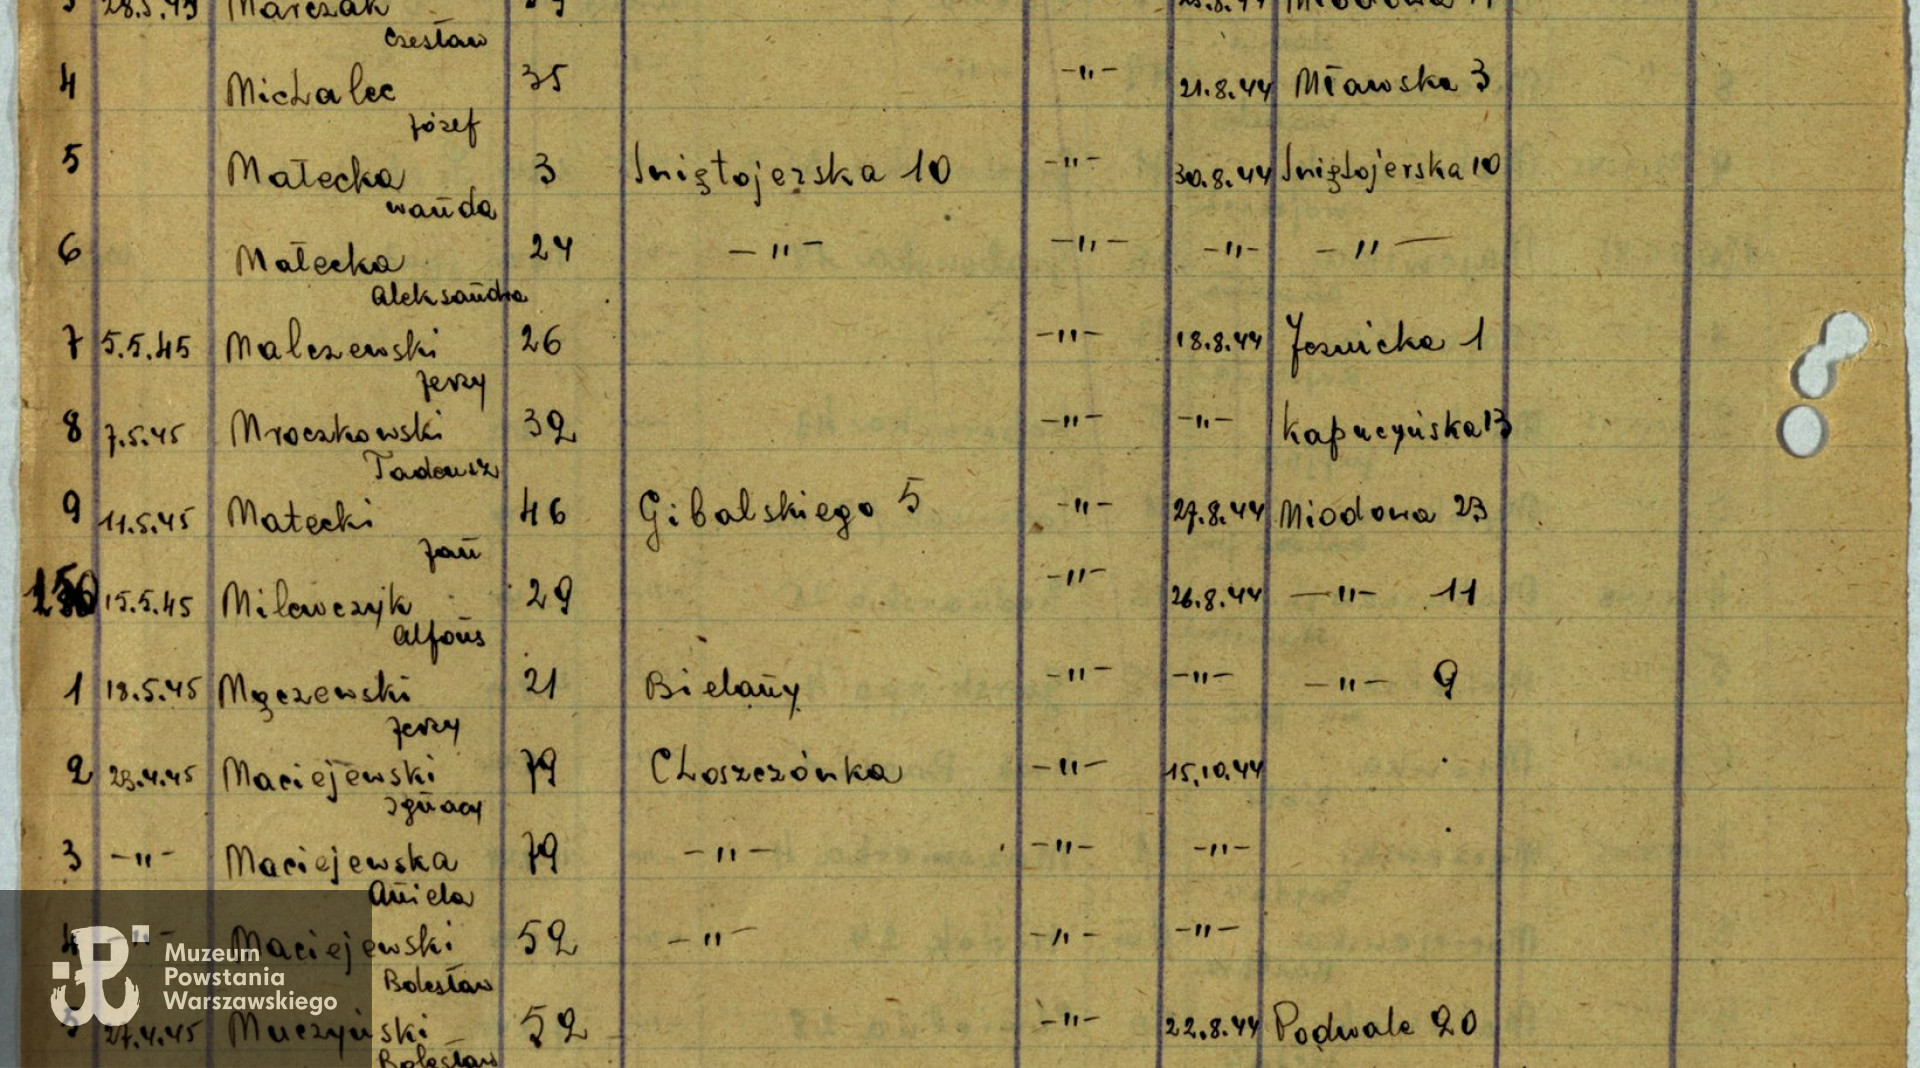 3 28.3.45 Marczak
Czesław
4 Michalec 35 -"- 21.8.44 Mławska 3
Józef
5 Małecka 3 Swiętojerska 10 -"- 30.8.44 Swiętojerska 10
Wanda
6 Małecka 24 -"- -"- -"- -"-
Aleksandra
7 5.5.45 Malczewski 26 -"- 18.8.44 Jezuicka 1
Jerzy
8 7.5.45 Mroczkowski 32 -"- -"- Kapucyńska 13
Tadeusz
9 11.5.45 Małecki 46 Gibalskiego 5 -"- 27.8.44 Miodowa 23
Jan
150 15.5.45 Milewczyk 29 -"- 26.8.44 -"- 11
Alfons
1 18.5.45 Mączewski 21 Bielany -"- -"- -"- 9
Jerzy
2 23.4.45 Maciejewski 79 Choszczówka -"- 15.10.44
Ignacy
3 -"- Maciejewska 79 -"- -"- -"-
Aniela
4 -"- Maciejewski 52 -"- -"- -"-
Bolesław
5 27.4.45 Muczyński 52 -"- 22.8.44 Podwale 20
Bolesław
Muzeum
Powstania
Warszawskiego